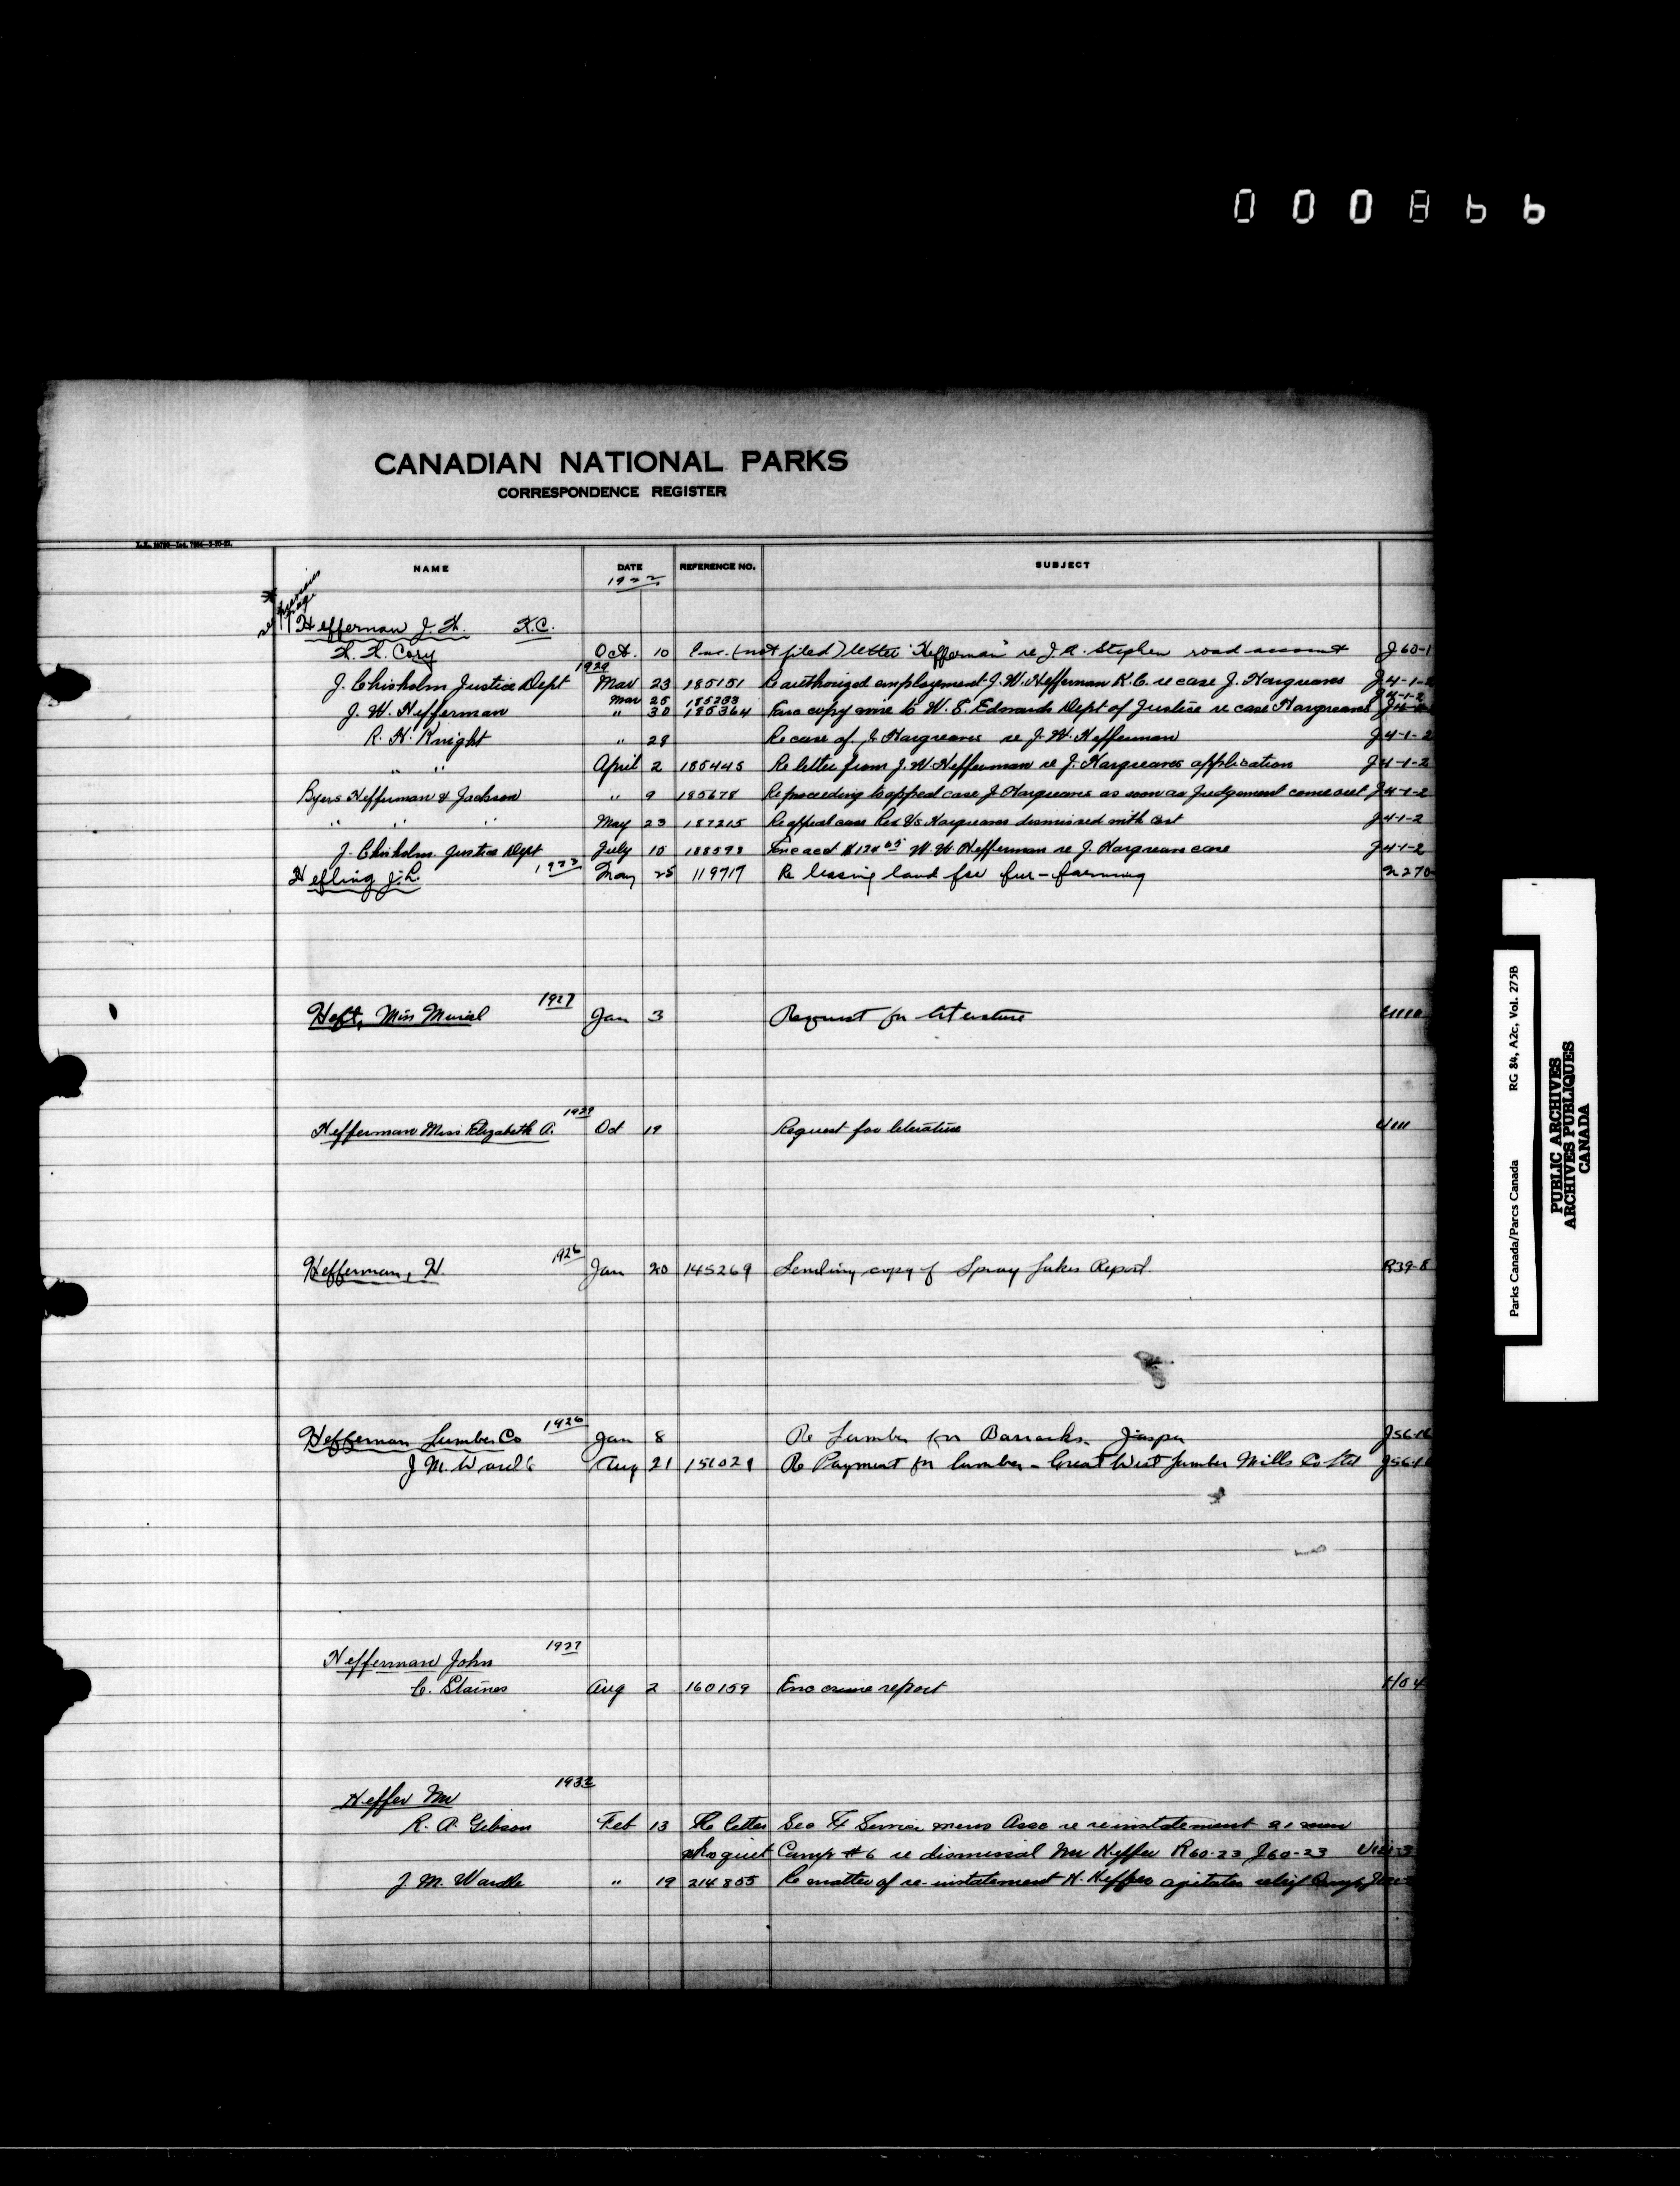 000866
CANADIAN NATIONAL PARKS
CORRESPONDENCE REGISTER
NAME DATE REFERENCE NO. SUBJECT
1922
previous page
Heffernan J. W. K.C.
W. W. Cory Oct. 10 Enc. (not filed) letter "Hefferman" re J A. Stephen road account J60-1
1929
J. Chisholm Justice Dept Mar 23 185151 Re authorized employment J. W. Hefferman K.C. re case J. Hargreaves J4-1-2
Mar 25 185233 J4-1-2
J. W. Hefferman " 30 185364 Enc copy wire to W. S. Edwards Dept of Justice re case Hargreaves
R. H. Knight " 28 Re case of J. Hargreaves re J. W. Hefferman J4-1-2
" " April 2 185445 Re letter from J. W. Hefferman re J. Hargreaves application J4-1-2
Byers Hefferman & Jackson " 9 185678 Re proceeding to appeal case J Hargreaves as soon as Judgement come out J4-1-2
" " " May 23 187215 Re appeal case Rex Vs Hargreaves dismissed with cost J4-1-2
J. Chisholm Justice Dept July 15 188598 Enc acct W. W. Hefferman re J. Hargreaves case J4-1-2
Hefling J. L. 1923 May 25 119717 Re leasing land for fur-farming
Heft, Miss Muriel 1927 Jan 3 Request for literature
Hefferman Miss Elizabeth A. 1929 Oct 19 Request for literature U111
Hefferman, H. 1926 Jan 20 145269 Sending copy of Spray Lakes Report. R39-8
Heffernan Lumber Co 1926 Jan 8 Re Lumber for Barracks. Jasper J56-16
J M. Wardle Aug 21 151029 Re Payment for lumber - Great West Lumber Mills Co Ltd
Hefferman John 1927
C. Staines Aug 2 160159 Enc crime report
Heffer Mr 1932
R. A. Gibson Feb 13 Re letter Sec Ex Service mens Assc re reinstatement 21 men
who quit Camp #6 re dismissal Mr Heffer R60-23 J60-23
J M. Wardle " 19 214855 Re matter of re-instatement H. Heffer agitator relief Camp
Parks Canada/Parcs Canada RG 84, A2c, Vol. 275B
PUBLIC ARCHIVES
ARCHIVES PUBLIQUES
CANADA